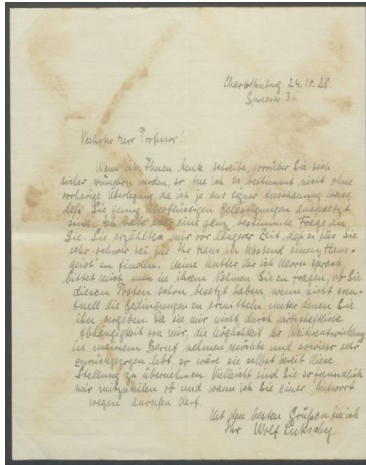 Charlottenburg 24.10.28.
Spreestr.
Verehrter Herr Professor!
Wenn ich Ihnen heute schreibe, worüber Sie sich
sicher wundern werden, so tue ich es bestimmt nicht ohne
vorherige Überlegung, da ich ja aus eigner Anschauung weiss,
daß Sie genug überflüssigen Belästigungen ausgesetzt
sind. Ich habe eine ganz bestimmte Frage an
Sie. Sie erzählten mir vor längerer Zeit, daß es für Sie
sehr schwer sei für Ihr Haus im Westend einen Haus-
geist zu finden. Meine Mutter, der ich davon sprach,
bittet mich nun in ihrem Namen Sie zu fragen, ob Sie
diesen Posten schon besetzt haben, wenn nicht even-
tuell die Bedingungen zu ermitteln unter denen Sie
ihn vergeben. Da sie mir nicht durch wirtschaftliche
Abhängigkeit von mir, die Möglichkeit der Weiterentwicklung
in meinem Beruf nehmen möchte und sowieso sehr
zurückgezogen lebt, so wäre sie selbst bereit diese
Stellung zu übernehmen. Vielleicht sind Sie so freundlich
mir mitzuteilen ob und wann ich Sie einer Antwort
wegen anrufen darf.
Mit den besten Grüßen bin ich
Ihr Wolf